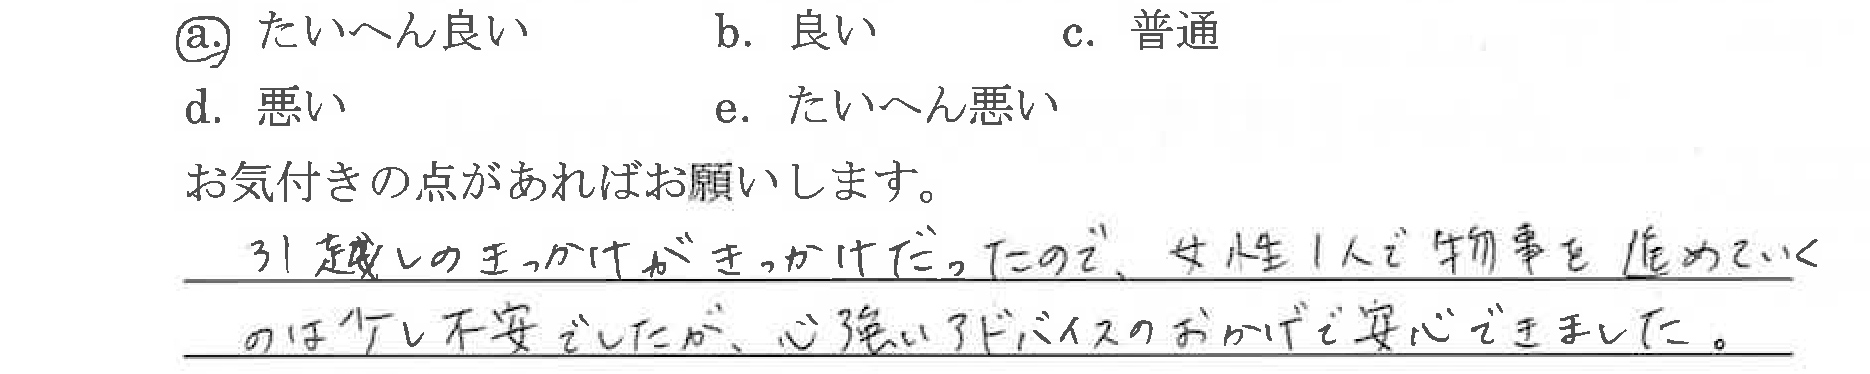 a. たいへん良い b. 良い c. 普通
d. 悪い e. たいへん悪い
お気付きの点があればお願いします。
引越しのきっかけがきっかけだったので、女性1人で物事を進めていく
のは少し不安でしたが、心強いアドバイスのおかげで安心できました。